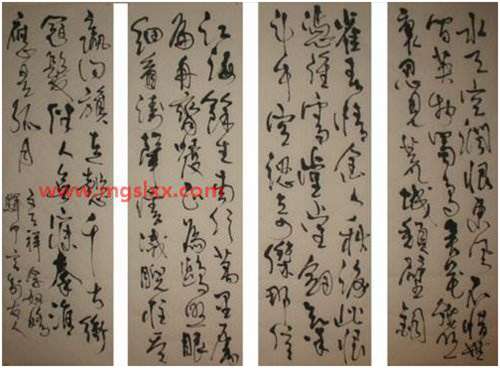 水天空阔恨东风不借世
间英物蜀鸟吴花残照
里忍见荒城颓壁铜
雀春情金人秋泪此恨
凭谁雪堂堂剑气
斗牛空认奇杰那信
江海余生南行万里属
扁舟齐发正为鸥盟眼
细看涛生云灭睨柱吞
嬴回旗走懿千古衝
冠髮伴人无寐秦淮
应是孤月
文天祥念奴娇
www.mgslxx.com